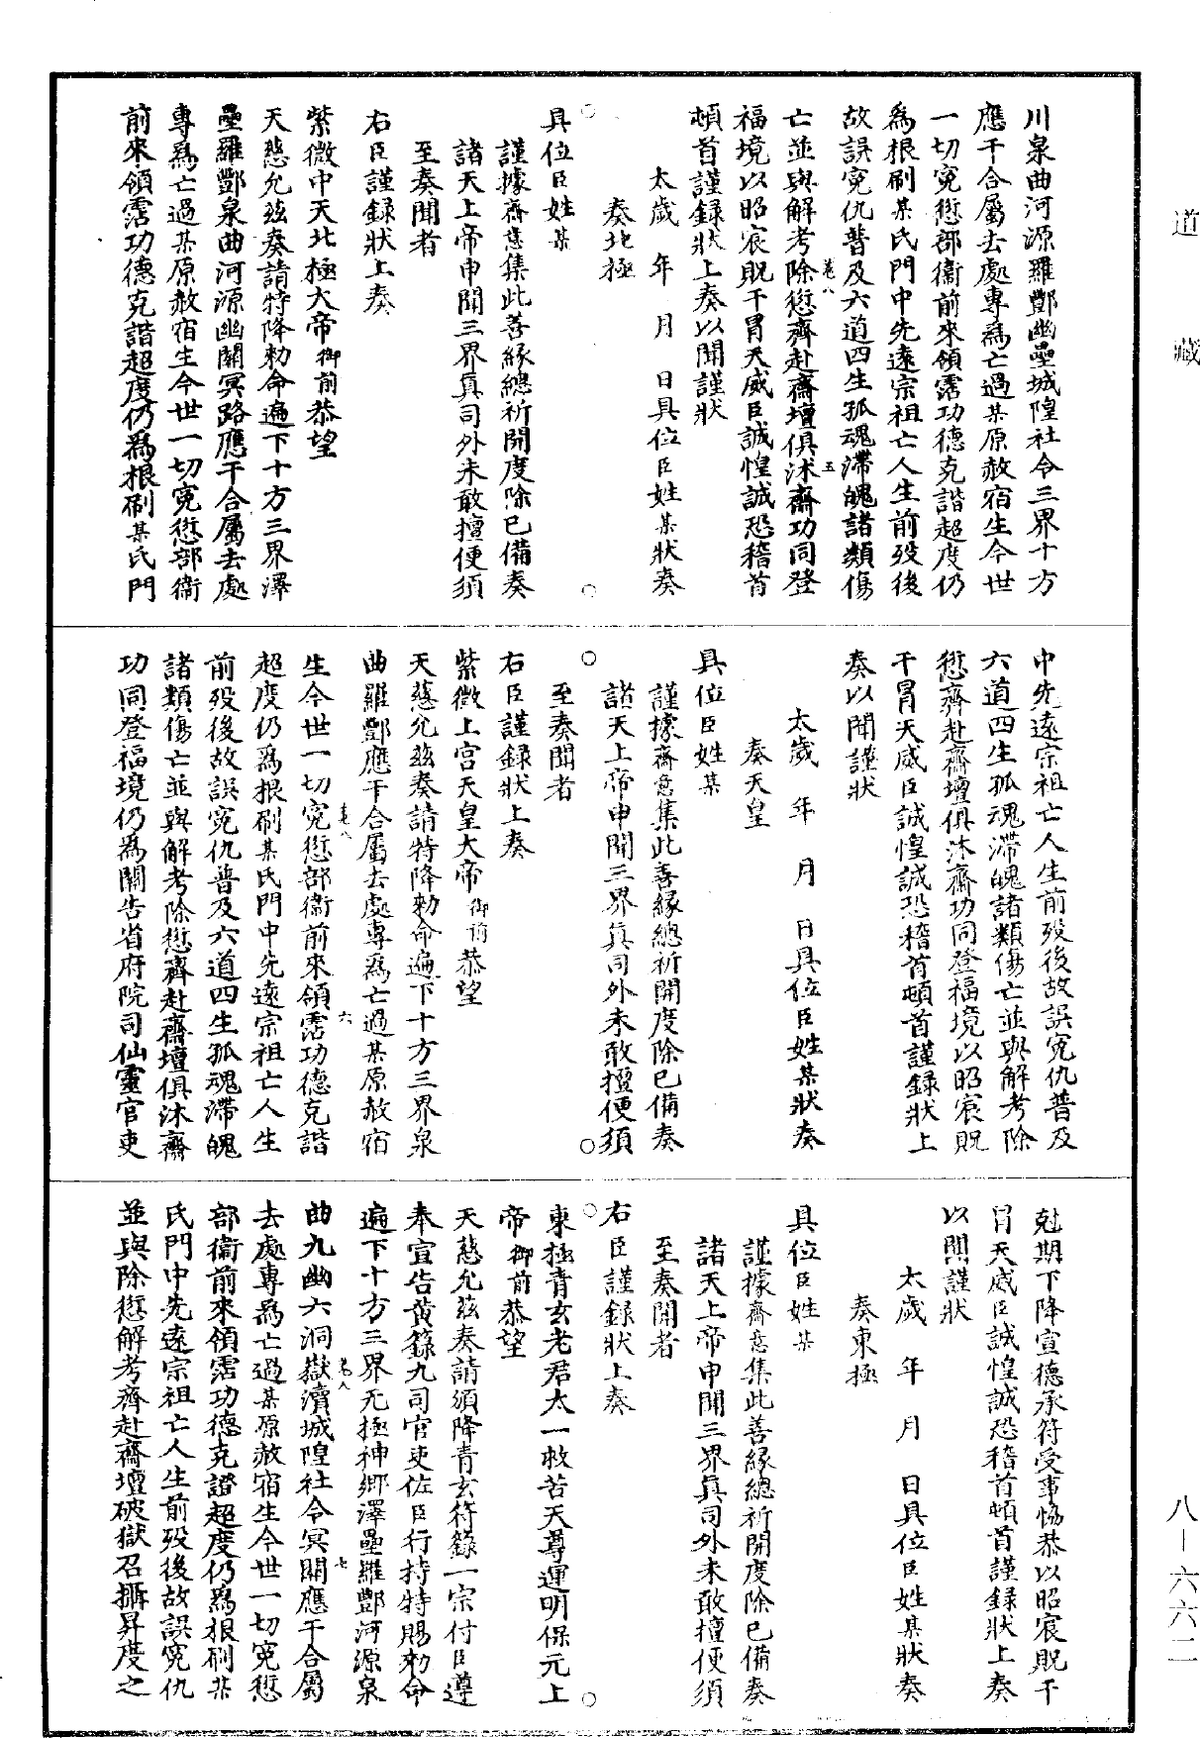 道藏
川泉曲河源羅酆幽壘城隍社令三界十方
應干合屬去處專為亡過某原赦宿生今世
一切冤愆部衞前來領霑功德克諧超度仍
為根刷某氏門中先遠宗祖亡人生前歿後
故誤冤仇普及六道四生孤魂滯魄諸類傷
卷八 五
亡並與解考除愆齊赴齋壇俱沐齋功同登
福境以昭宸貺干冒天威臣誠惶誠恐稽首
頓首謹録狀上奏以聞謹狀
太歲 年 月 日具位臣姓某狀奏
奏北極
具位臣姓某
謹據齋意集此善緣總祈開度除已備奏
諸天上帝申聞三界真司外未敢擅便須
至奏聞者
右臣謹録狀上奏
紫微中天北極大帝御前恭望
天慈允茲奏請特降勑命遍下十方三界澤
壘羅酆泉曲河源幽關冥路應干合屬去處
專為亡過某原赦宿生今世一切冤愆部衞
前來領霑功德克諧超度仍為根刷某氏門
中先遠宗祖亡人生前歿後故誤冤仇普及
六道四生孤魂滯魄諸類傷亡並與解考除
愆齊赴齋壇俱沐齋功同登福境以昭宸貺
干冒天威臣誠惶誠恐稽首頓首謹録狀上
奏以聞謹狀
太歲 年 月 日具位臣姓某狀奏
奏天皇
具位臣姓某
謹據齋意集此善緣總祈開度除已備奏
諸天上帝申聞三界真司外未敢擅便須
至奏聞者
右臣謹録狀上奏
紫微上宮天皇大帝御前恭望
天慈允茲奏請特降勑命遍下十方三界泉
曲羅酆應干合屬去處專為亡過某原赦宿
卷八 六
生今世一切冤愆部衞前來領霑功德克諧
超度仍為根刷某氏門中先遠宗祖亡人生
前歿後故誤冤仇普及六道四生孤魂滯魄
諸類傷亡並與解考除愆齊赴齋壇俱沐齋
功同登福境仍為關告省府院司仙靈官吏
尅期下降宣德承符受事恊恭以昭宸貺干
冒天威臣誠惶誠恐稽首頓首謹録狀上奏
以聞謹狀
太歲 年 月 日具位臣姓某狀奏
奏東極
具位臣姓某
謹據齋意集此善緣總祈開度除已備奏
諸天上帝申聞三界真司外未敢擅便須
至奏聞者
右臣謹録狀上奏
東極青玄老君太一救苦天尊運明保元上
帝御前恭望
天慈允茲奏請頒降青玄符籙一宗付臣遵
奉宣告黃籙九司官吏佐臣行持特賜勑命
遍下十方三界无極神鄉澤壘羅酆河源泉
卷八 七
曲九幽六洞嶽瀆城隍社令冥關應干合屬
去處專為亡過某原赦宿生今世一切冤愆
部衞前來領霑功德克證超度仍為根刷某
氏門中先遠宗祖亡人生前歿後故誤冤仇
並與除愆解考齊赴齋壇破獄召攝昇度之
八—六六二